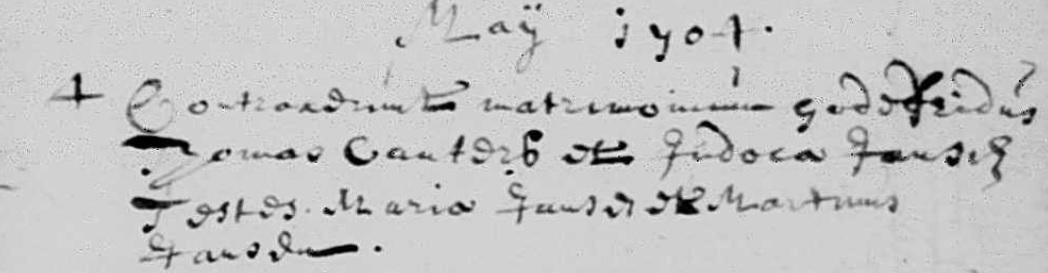 Maÿ 1704.
4 Contraxerunt matrimonium godefridus
Thomas Canters et Judoca Jansen
Testes. Maria Jansen et Martinus
Jansen.